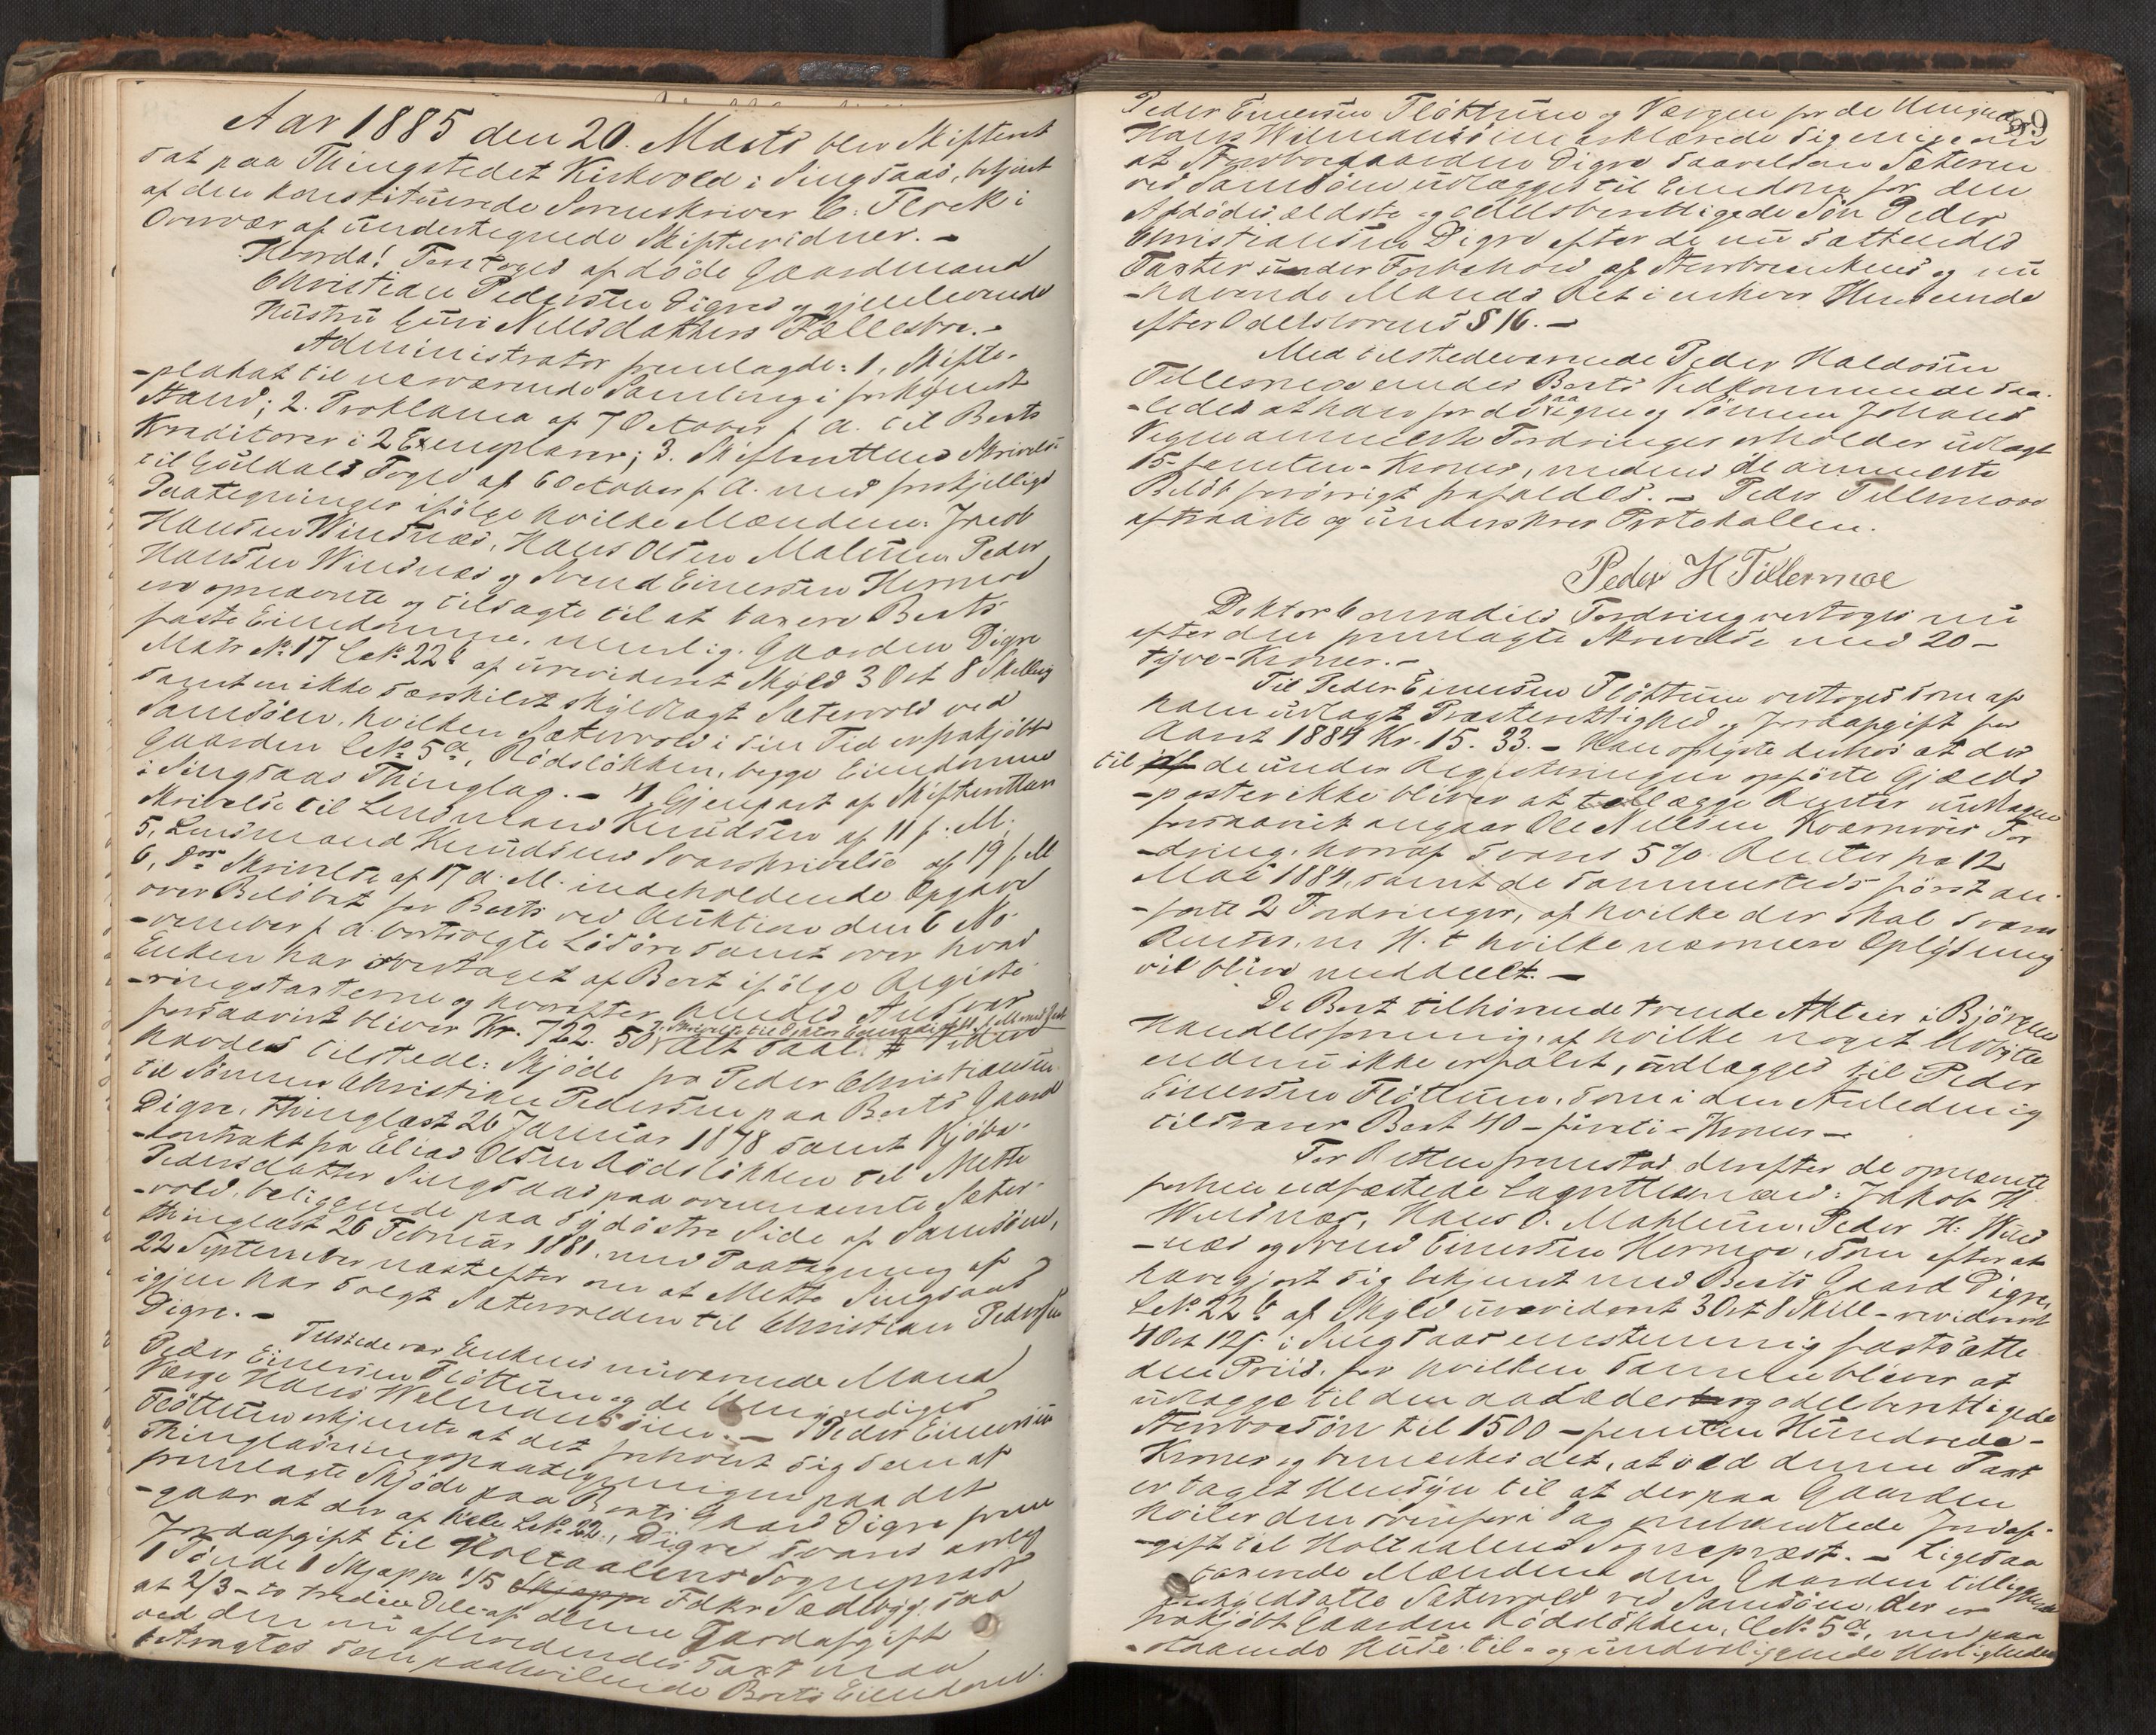 Aar 1885 den 20. Marts blev Skifteret
sat paa Thingstedet Kirkvold i Singsaas, betjent
af den konstituerede Sorenskriver C. Flock i
Overvær af undertegnede Skiftevidner. –
Hvorda! Foretoges afdöde Gaardmand
Christian Pedersen Digres og gjenlevende
Hustru Guri Nilsdatters Fællesbo. –
Administrator fremlagde: 1, Skifte-
-plakat til nærværende Samling i forkyndt
Stand; 2. Proklama af 7 October f. A. til Boets
Kreditorer i 2 Exemplarer; 3. Skifterettens Skrivelse
til Guldals Foged af 6 October f. A. med forskjellige
Paategninger ifölge hvilke Mændene: Jacob
Hansen Windsnæs, Hans Olsen Malum, Peder
Hansen Windsnæs og Svend Einersen Hermoe
ere opnævnte og tilsagte til at taxere Boets
faste Eiendomme, nemlig: Gaarden Digre
Matr No 17 LNo 22b af urevideret Skyld 3 Ort 8 Skilling
samt en ikke særskilt skyldlagt Sætervold ved
Samsöen, hvilken Sætervold i sin Tid er frakjöbt
Gaarden LNo 5a, Rödslökken, begge Eiendomme
i Singsaas Thinglag. – 4, Gjenpart af Skifterettens
Skrivelse til Lensmand Knudsen af 11 f. M.
5, Lensmand Knudsens Svarskrivelse af 19 f. M
6, Ds Skrivelse af 17 d. M. indeholdende Opgave
over Belöbet for Boets ved Auktion den 6 No-
-vember f. A. bortsolgte Lösöre samt over hvad
Enken har overtaget af Boet ifölge Registe-
-ringstaxterne og hvorefter hendes Ansvar
forsaavidt bliver Kr. 722. 50, Alt saal. # Videre
havdes tilstede: Skjöde fra Peder Christiansen
til Sönnen Christian Pedersen paa Boets Gaard
Digre, thinglæst 26 Januar 1878 samt Kjöbe-
-kontrakt fra Elias Olsen Rödslökken til Mette
Pedersdatter Singsaas paa ovennævnte Sæter-
-vold, beliggende paa sydöstre Side af Samsöen,
thinglæst 26 Februar 1881, med Paategning af
22 September næstefter om at Mette Singsaas
igjen har solgt Sætervolden til Christian Pedersen
Digre. –
Tilstede var Enkens nuværende Mand
Peder Einersen Flöttum og de Umyndiges
Værge Hans Welmansöien. – Peder Einersen
Flöttum erkjendte at det forholdt sig som af
Thinglæsningspaategningen paa det
fremlagte Skjöde paa Boets Gaard Digre frem-
-gaar at der af hele LNo 22, Digre svares aarlig
Jordafgift til Holtaalens Sognepræst
1 Tönde 1 Skjæppe 1/5 Fdkr Sædbyg, saa
at 2/3 – to tredie Dele af denne Jordafgift
ved den nu afholdendes Taxt maa
betragtes som paahvilende Boets Eiendom.
59
Peder Einersen Flöttum og Værgen for de Umyndige
Hans Welmansöien erklærede sig enige om
at Sterbogaarden Digre saavelsom Sæteren
ved Samsöen udlægges til Eiendom for den
Afdödes ældste og odelsberettigede Sön Peder
Christiansen Digre efter de nu sættendes
Taxter under Forbehold af Sterboenkens og nu
-havende Mands Ret i enhver Henseende
efter Odelslovens § 16. –
Med tilstedeværende Peder Haldosen
Tillermoe enedes Boets Vedkommende saa-
-ledes at han for de egne og Sönnen Johans
Vegne anmeldte Fordringer erholder udlagt
15 – femten – Kroner, medens de anmeldte
Belöb forövrigt frafaldes. – Peder Tillermoe
aftraadte og underskrev Protokollen.
Peder H Tillermoe
Doktor Conradis Fordring vedtoges nu
efter den fremlagte Skrivelse med 20 –
tyve – Kroner. –
Til Peder Einersen Flöttum vedtoges som af
ham udlagt Præsterettighed og Jordafgift for
Aaret 1884 Kr. 15. 33. – Han oplyste derhos at der
til de under Registeringen opförte Gjælds-
-poster ikke bliver at tillægge Renter undtagen
forsaavidt angaar Ole Nilsen Kværnöes For-
-dring, hvoraf svares 5 % Renter fra 12
Mai 1884, samt de sammesteds först an-
-förte 2 Fordringer, af hvilke der skal svares
Renter, m. H. t. hvilke nærmere Oplysning
vil blive meddeelt. –
De Boet tilhörende trende Aktier i Björgen
Handelsforening, af hvilke noget Udbytte
endnu ikke er faldt, udlægges til Peder
Einersen Flöttum, som i den Anledning
tilsvarer Boet 40 – firti – Kroner –
For Retten fremstod derefter de opnævnte
forhen edfæstede Lagrettesmænd: Jakob H.
Windsnæs, Hans O. Mahlum, Peder H. Winds-
-næs og Svend Einersen Hermoe, som efter at
have gjort sig bekjendt med Boets Gaard Digre,
LNo 22b af Skyld urevideret 3 Ort 8 Skill – revideret
4 Ort 12 ß i Singsaas eenstemmig fastsatte
den Priis, for hvilken samme bliver at
udlægge til den aasædes og odelsberettigede
Sterboesön til 1500 – femten Hundrede –
Kroner og bemærkes det, at ved denne Taxt
er taget Hensyn til at der paa Gaarden
hviler den ovenfor i Dag omhandlede Jordaf-
-gift til Holtaalens Sognepræst. – Ligesaa
taxerede Mændene den Gaarden tilliggende
uskyldsatte Sætervold ved Samsöen, der er
frakjöbt Gaarden Rödslökken, LNo 5a, med paa-
-staaende Huse, til- og underliggende Herligheder